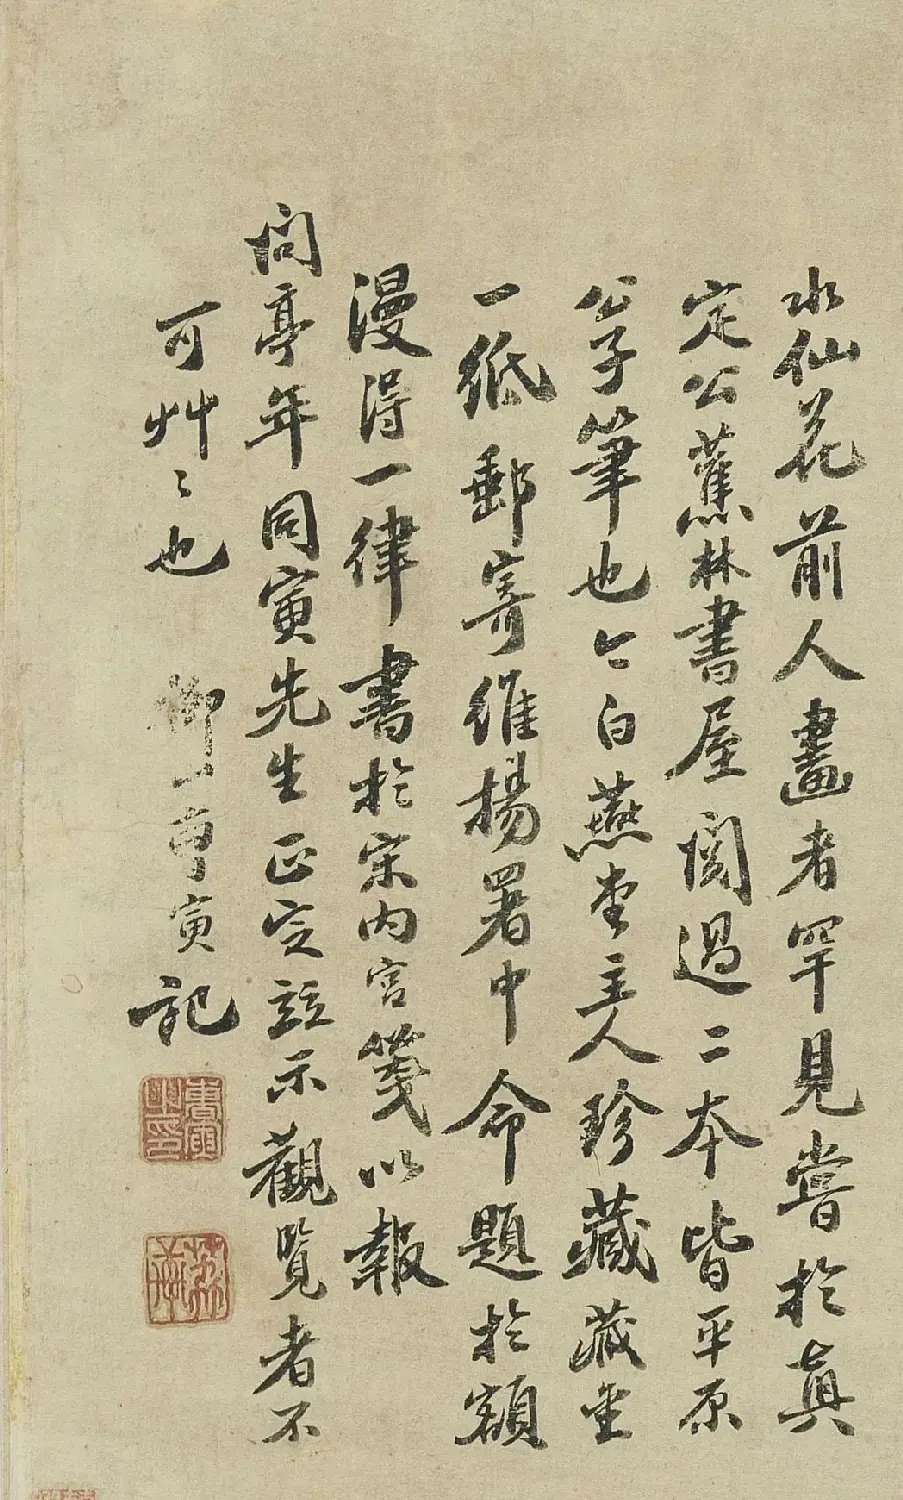 水仙花前人畫者罕見嘗於真
定公蕉林書屋閱過二本皆平原
公子筆也今白燕堂主人珍藏藏
一紙郵寄維揚署中命題於額
漫得一律書於宋內宮箋以報
問亭年同寅先生正定竝示觀覽者不
可艸〻也 柳山曹寅記
曹寅之印
荔軒